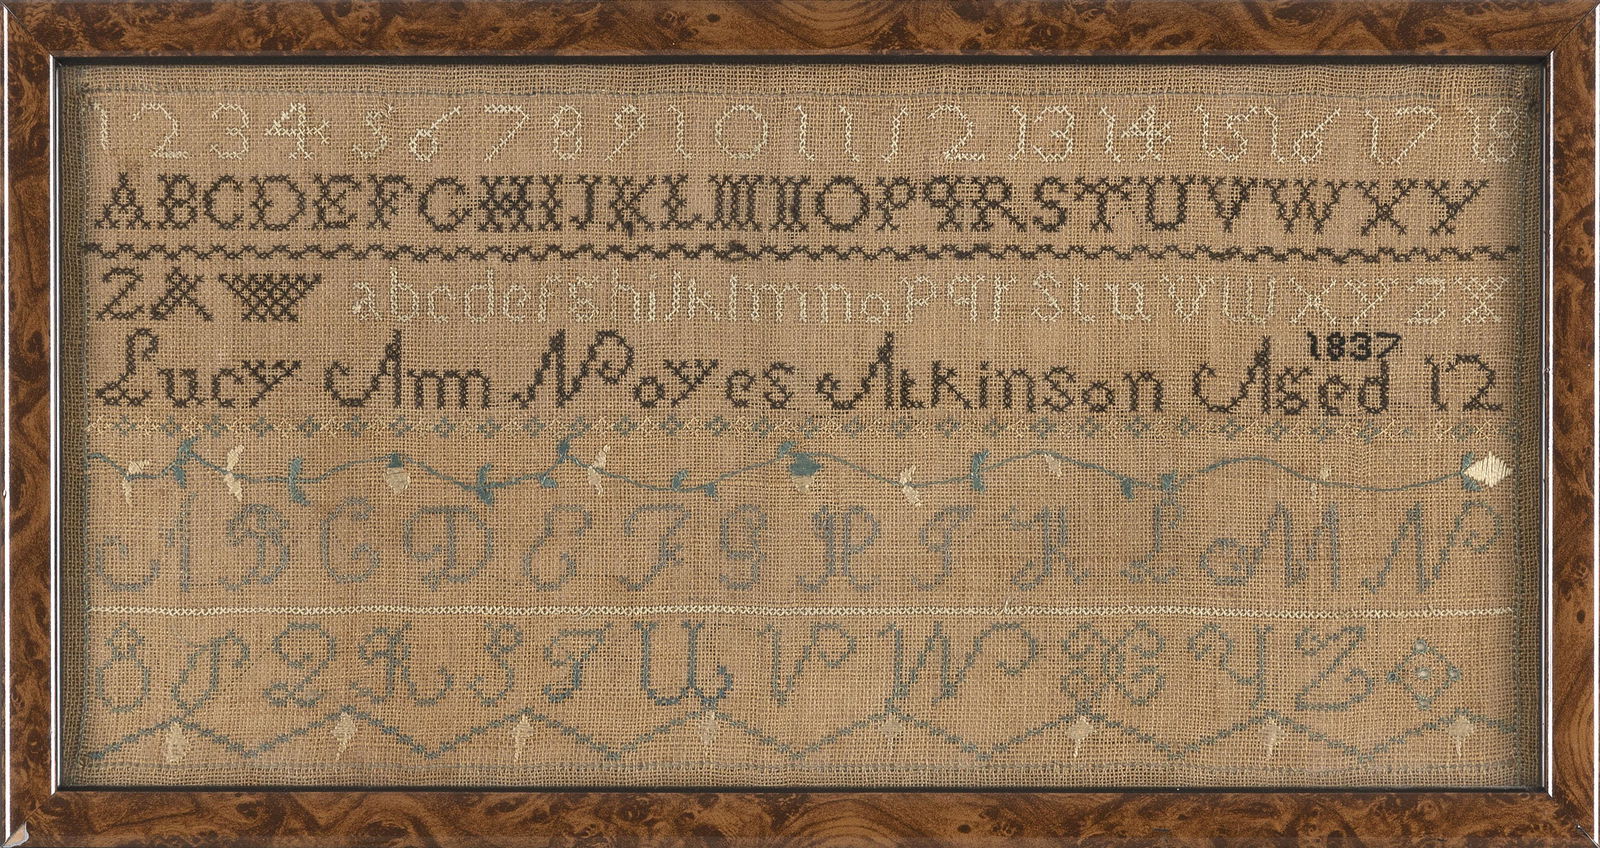 1 2 3 4 5 6 7 8 9 10 11 12 13 14 15 16 17 18
ABCDEFGHIJKLMNOPQRSTUVWXY
Z& abcdefghijklmnopqrstuvwxyz&
1837
Lucy Ann Noyes Atkinson Aged 12
A B C D E F G H I K L M N
O P Q R S T U V W X Y Z